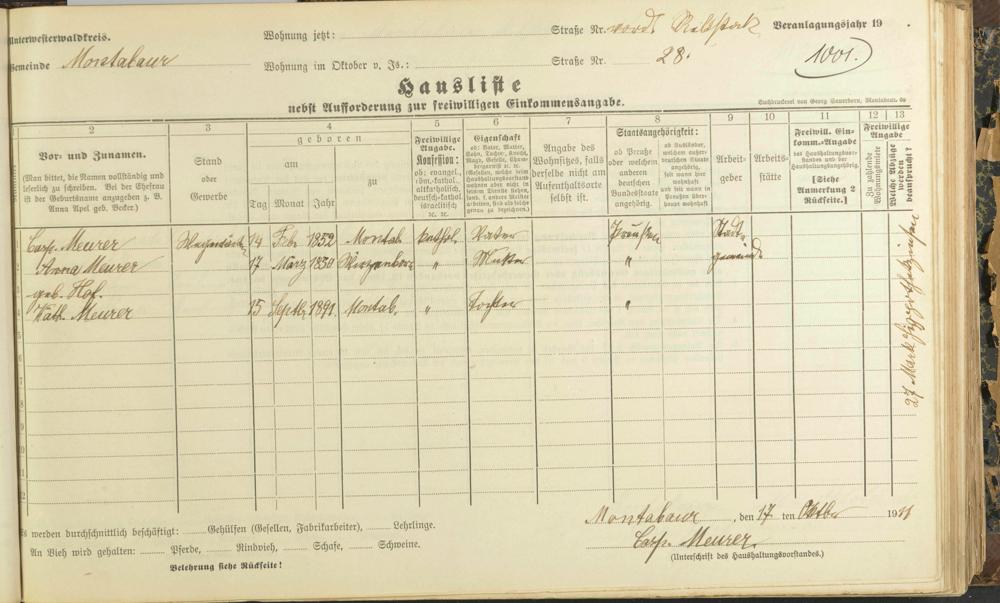 Unterwesterwaldkreis.
Wohnung jetzt:
Straße Nr. vord. Rebstock
Veranlagungsjahr 19
Gemeinde Montabaur
Wohnung im Oktober v. Js.:
Straße Nr. 28.
1001.
Hausliste
nebst Aufforderung zur freiwilligen Einkommensangabe.
Buchdruckerei von Georg Sauerborn, Montabaur.
2
3
4
5
6
7
8
9
10
11
12
13
Vor- und Zunamen.
(Man bittet, die Namen vollständig und
leserlich zu schreiben. Bei der Ehefrau
ist der Geburtsname anzugeben z. B.
Anna Apel geb. Becker.)
Stand
oder
Gewerbe
geboren
am
zu
Tag
Monat
Jahr
Freiwillige
Angabe.
Konfession:
ob: evangel.,
röm.-kathol.,
altkatholisch,
deutsch-kathol.
israelitisch
ꝛc. ꝛc.
Eigenschaft
ob: Vater, Mutter,
Sohn, Tochter, Knecht,
Magd, Geselle,
Angabe des
Wohnsitzes, falls
derselbe nicht am
Aufenthaltsorte
selbst ist.
Staatsangehörigkeit:
ob Preuße
oder welchem
anderen
deutschen
Bundesstaate
angehörig.
ob Ausländer,
welchem außer-
deutschen Staate
angehörig,
und seit wann in
Preußen über-
haupt wohnhaft
Arbeit-
geber
Arbeits-
stätte
Freiwill. Ein-
komm.-Angabe
des Haushaltungsvor-
standes und der
Haushaltungsangehörig.
[Siehe
Anmerkung 2
Rückseite.]
Freiwillige
Angabe
Zu zahlende
Wohnungsmiete
Welche Abzüge
werden
beansprucht?
Casp. Meurer
14 Febr 1852 Montab. kathol. Vater Preußen Stadt-
Anna Meurer 17 März 1850 " Mutter " gemeinde
geb. Hof.
Kath. Meurer 15 Septb. 1891 Montab. " Tochter "
27 Mark Hypothekzinsen
Es werden durchschnittlich beschäftigt: Gehülfen (Gesellen, Fabrikarbeiter), Lehrlinge.
An Vieh wird gehalten: Pferde, Rindvieh, Schafe, Schweine.
Belehrung siehe Rückseite!
Montabaur, den 17 ten Oktbr 1911
Casp. Meurer.
(Unterschrift des Haushaltungsvorstandes.)